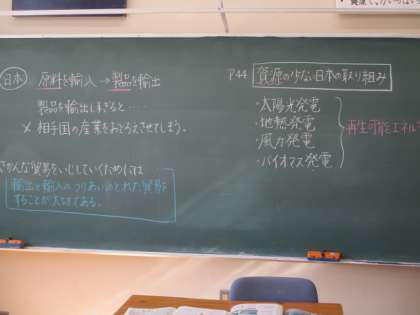 日本 原料を輸入 → 製品を輸出
製品を輸出しすぎると‥‥
× 相手国の産業をおとろえさせてしまう。
さかんな貿易をいじしていくためには
輸出と輸入のつりあいのとれた貿易を
することが大切である。
P44 資源の少ない日本の取り組み
・太陽光発電
・地熱発電
・風力発電
・バイオマス発電
再生可能エネルギ